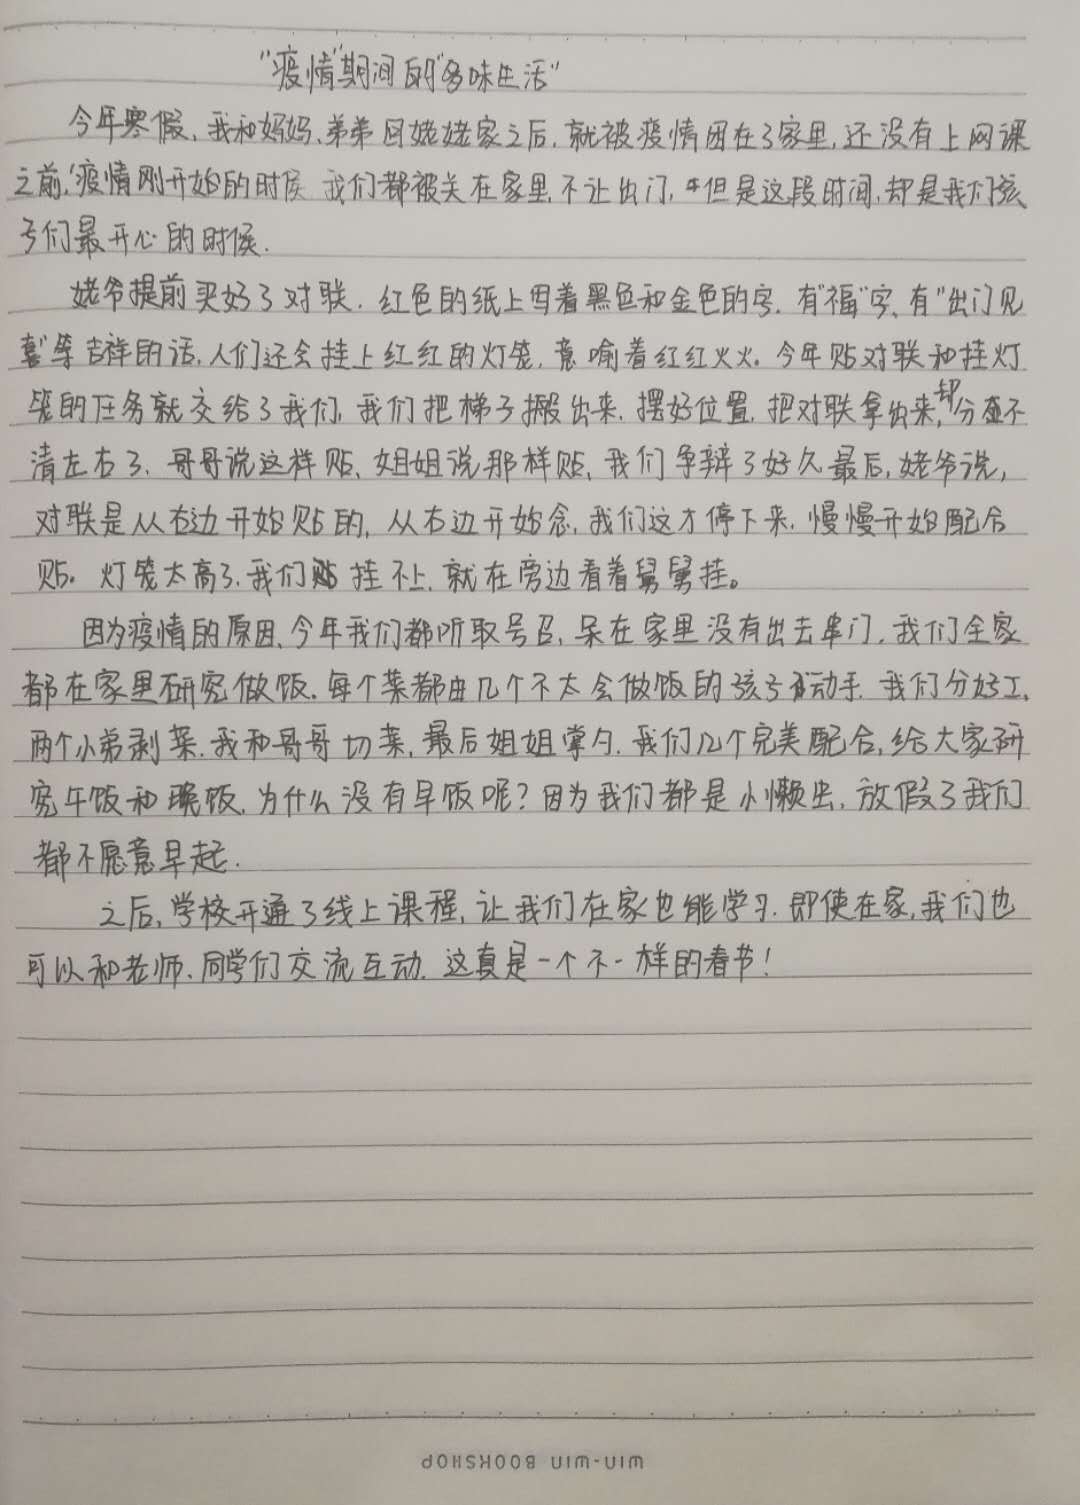 “疫情”期间的“多味生活”
今年寒假,我和妈妈、弟弟回姥姥家之后,就被疫情困在了家里,还没有上网课
之前,疫情刚开始的时候 我们都被关在家里,不让出门,但是这段时间,却是我们孩
子们最开心的时候.
姥爷提前买好了对联.红色的纸上写着黑色和金色的字.有“福”字、有“出门见
喜”等吉祥的话,人们还会挂上红红的灯笼,意喻着红红火火。今年贴对联和挂灯
笼的任务就交给了我们,我们把梯子搬出来.摆好位置,把对联拿出来,却分不
清左右了.哥哥说这样贴,姐姐说那样贴,我们争辩了好久最后,姥爷说,
对联是从右边开始贴的,从右边开始念,我们这才停下来.慢慢开始配合
贴。灯笼太高了.我们挂不上,就在旁边看着舅舅挂。
因为疫情的原因、今年我们都听取号召,呆在家里没有出去串门.我们全家
都在家里研究做饭.每个菜都由几个不太会做饭的孩子动手.我们分好工,
两个小弟剥菜.我和哥哥切菜,最后姐姐掌勺.我们几个完美配合,给大家研
究午饭和晚饭,为什么没有早饭呢?因为我们都是小懒虫,放假了我们
都不愿意早起.
之后,学校开通了线上课程,让我们在家也能学习.即使在家,我们也
可以和老师、同学们交流互动.这真是一个不一样的春节!
WIN-WIN BOOKSHOP